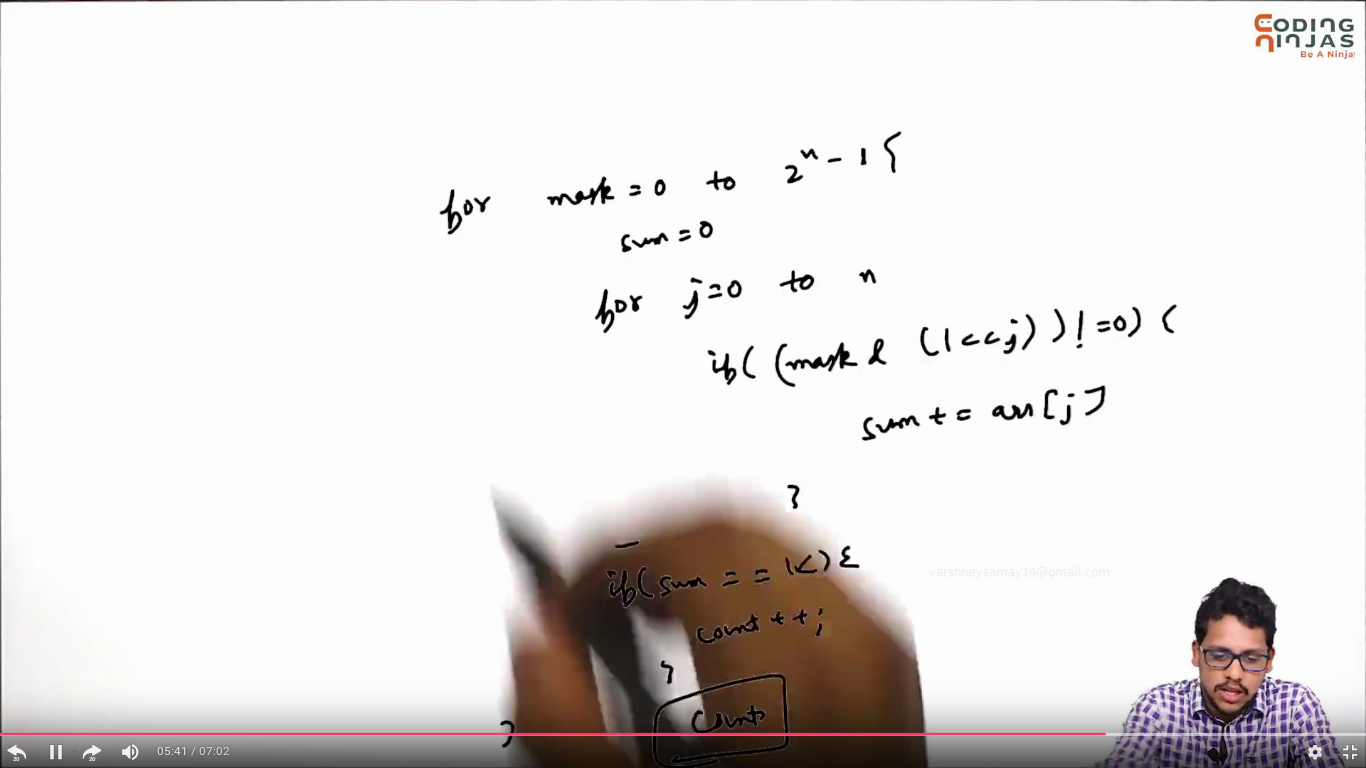 CODING
NINJAS
Be A Ninja
for mask = 0 to 2^n - 1 {
sum = 0
for j = 0 to n
if( (mask & (1<<j) ) != 0) {
sum += arr[j]
}
if(sum == K) {
count ++;
}
count
}
varshneysamay14@gmail.com
20
20
05:41 / 07:02